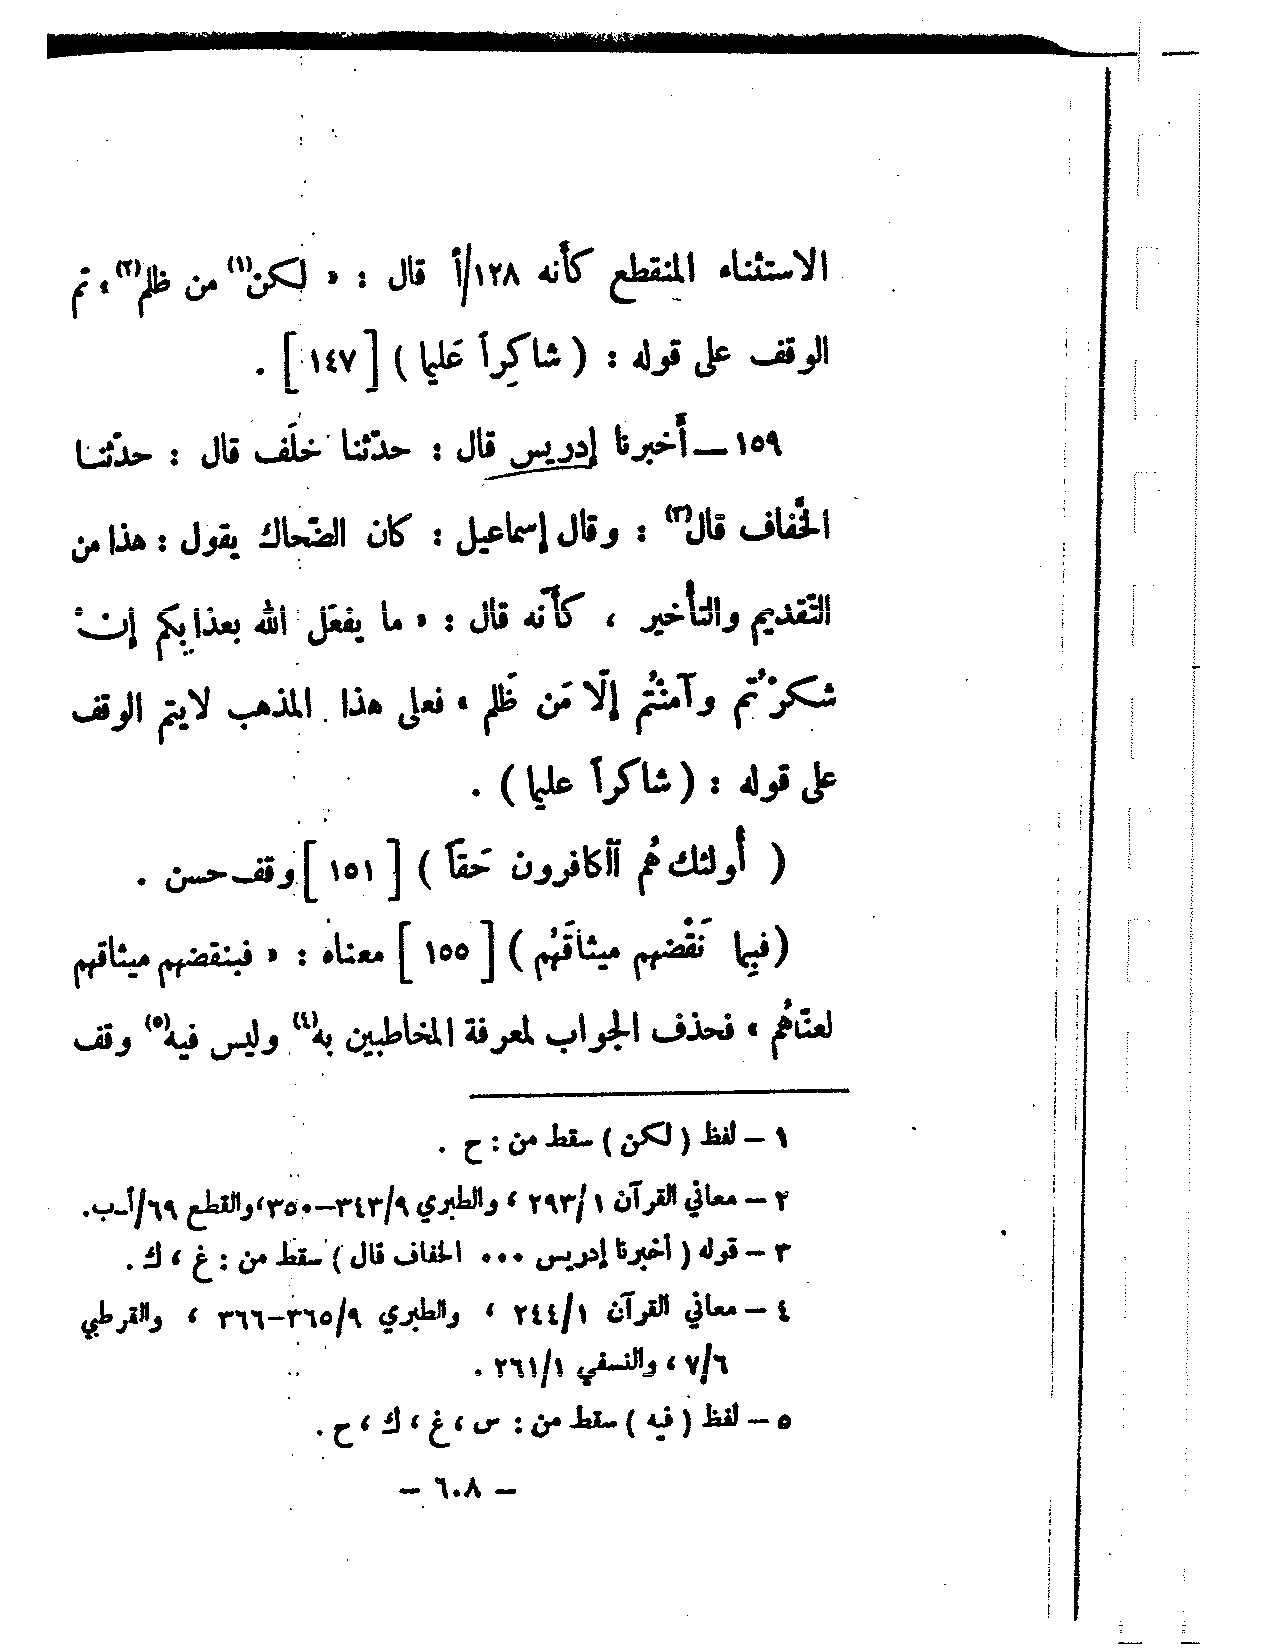 الاستثناء المنقطع كأنه ١٢٨/أ قال : « لكن(١) من ظلم(٢) » تم
الوقف على قوله : ( شاكراً عَليما ) [ ١٤٧ ] .
١٥٩ ـ أَخبرنا إدريس قال : حدّثنا خلَف قال : حدّثنا
الخَّفاف قال(٣) : وقال إسماعيل : كان الضّحاك يقول : هذا من
التّقديم والتأخير ، كأنّه قال : « ما يفعَل الله بعذابِكم إن
شكرْتُم وآمنْتُم إلّا مَن ظَلم » فعلى هذا المذهب لايتم الوقف
على قوله : ( شاكراً عليما ) .
( أُولئك هُم اَلْكافرون حَقاً ) [ ١٥١ ] وقف حسن .
( فبِما نَقْضهم ميثاقَهُم ) [ ١٥٥ ] معناه : « فبنقضهم ميثاقهم
لعنّاهُم » فحذف الجواب لمعرفة المخاطبين به(٤) وليس فيه(٥) وقف
١ – لفظ ( لكن ) سقط من : ح .
٢ – معاني القرآن ٢٩٣/١ ، والطبري ٣٤٣/٩–٣٥٠، والقطع ٦٩/أ-ب.
٣ – قوله ( أخبرنا إدريس ... الخفاف قال ) سقط من : غ ، ك .
٤ – معاني القرآن ٢٤٤/١ ، والطبري ٣٦٥/٩–٣٦٦ ، والقرطبي
٧/٦ ، والنسفي ٢٦١/١ .
٥ – لفظ ( فيه ) سقط من : س ، غ ، ك ، ح .
– ٦٠٨ –